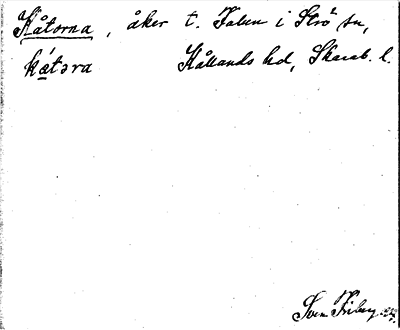 Kåtorna, åker t. Falen i Strö sn,
kátəra Kållands hd, Skarab. l.
Sven Friberg